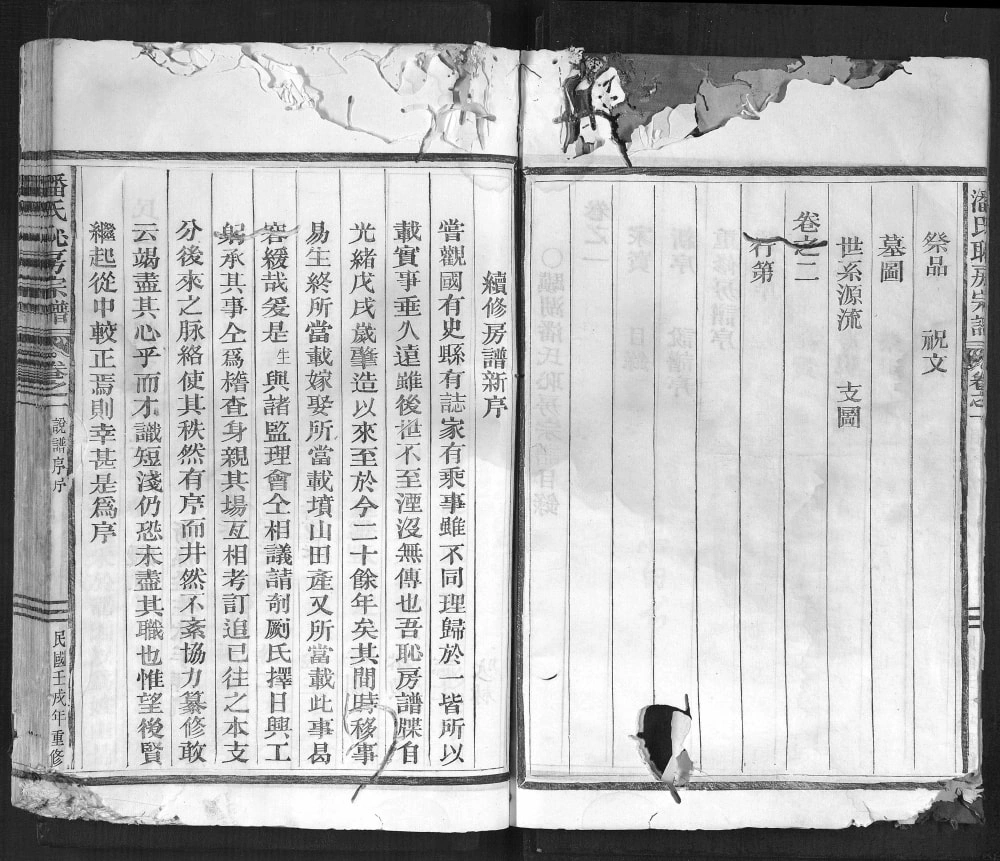 潘氏恥房宗譜 卷之一
祭品 祝文
墓圖
世系源流 支圖
卷之二
行第
續修房譜新序
嘗觀國有史縣有誌家有乘事雖不同理歸於一皆所以
載實事垂久遠雖後世不至湮沒無傳也吾恥房譜牒自
光緒戊戌歲肇造以來至於今二十餘年矣其間時移事
易生終所當載嫁娶所當載墳山田產又所當載此事曷
容緩哉爰是生與諸監理會仝相議請剞劂氏擇日興工
躬承其事仝爲稽查身親其場互相考訂追已往之本支
分後來之脉絡使其秩然有序而井然不紊協力纂修敢
云竭盡其心乎而才識短淺仍恐未盡其職也惟望後賢
繼起從中較正焉則幸甚是爲序
潘氏恥房宗譜 卷之一 說譜序序 民國壬戌年重修